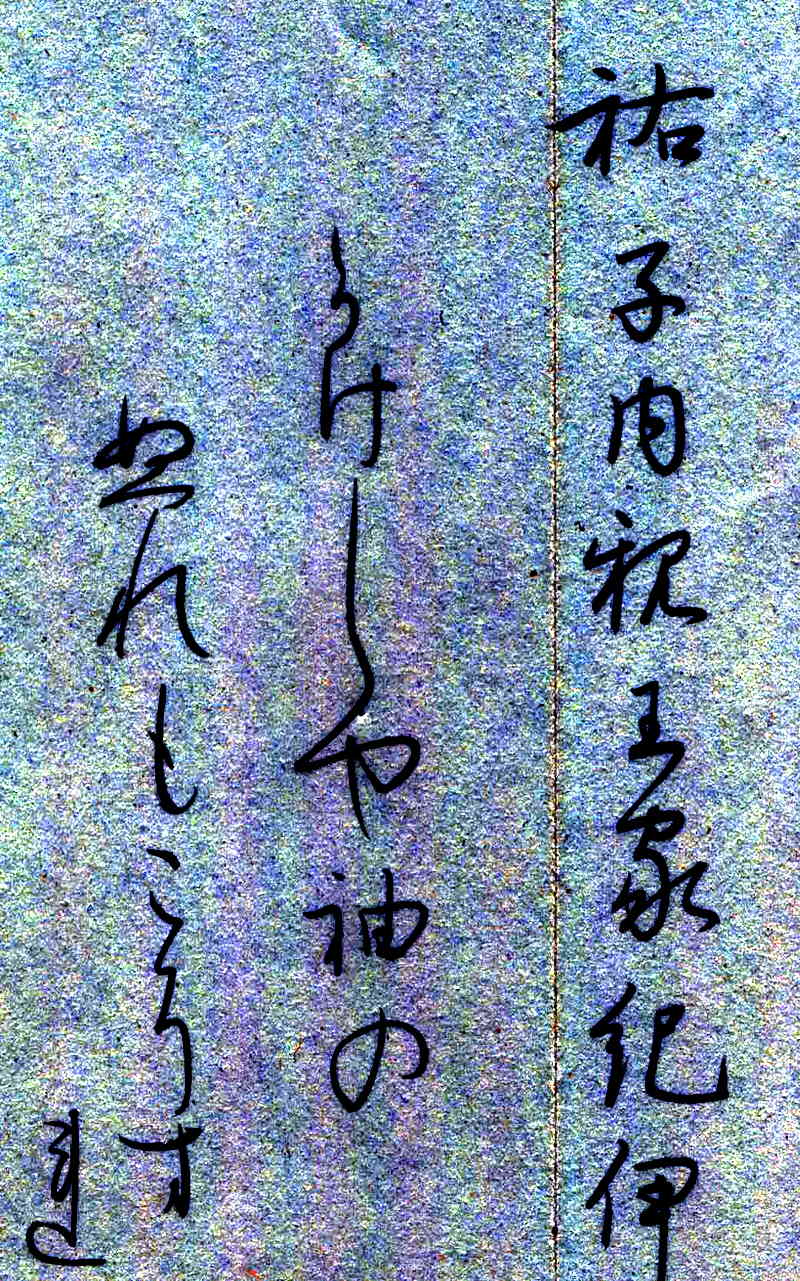 祐子内親王家紀伊
かけしや袖の
ぬれもこそす
れ